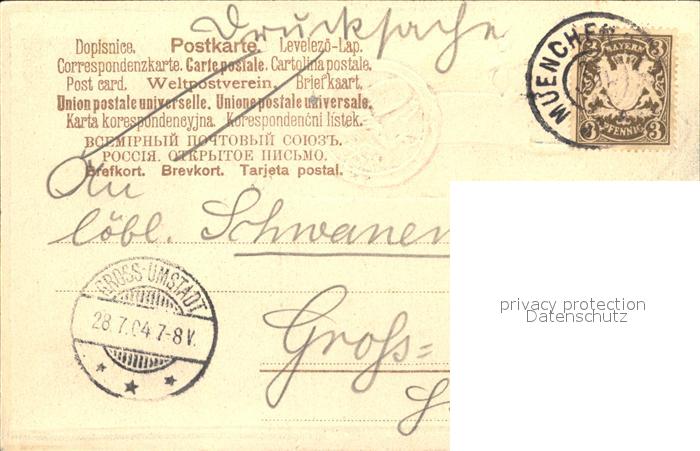 Drucksache
Dopisnice. Postkarte. Levelező-Lap.
Correspondenzkarte. Carte postale. Cartolina postale.
Post card. Weltpostverein. Briefkaart.
Union postale universelle. Unione postale universale.
Karta korespondencyjna. Korespondenční lístek.
ВСЕМІРНЫЙ ПОЧТОВЫЙ СОЮЗЪ.
РОССІЯ. ОТКРЫТОЕ ПИСЬМО.
Brefkort. Brevkort. Tarjeta postal.
MUENCHEN
BAYERN
3 3
PFENNIG
3 3
An
löbl. Schwanen
GROSS-UMSTADT
28.7.04 7-8 V.
Gross=
privacy protection
Datenschutz